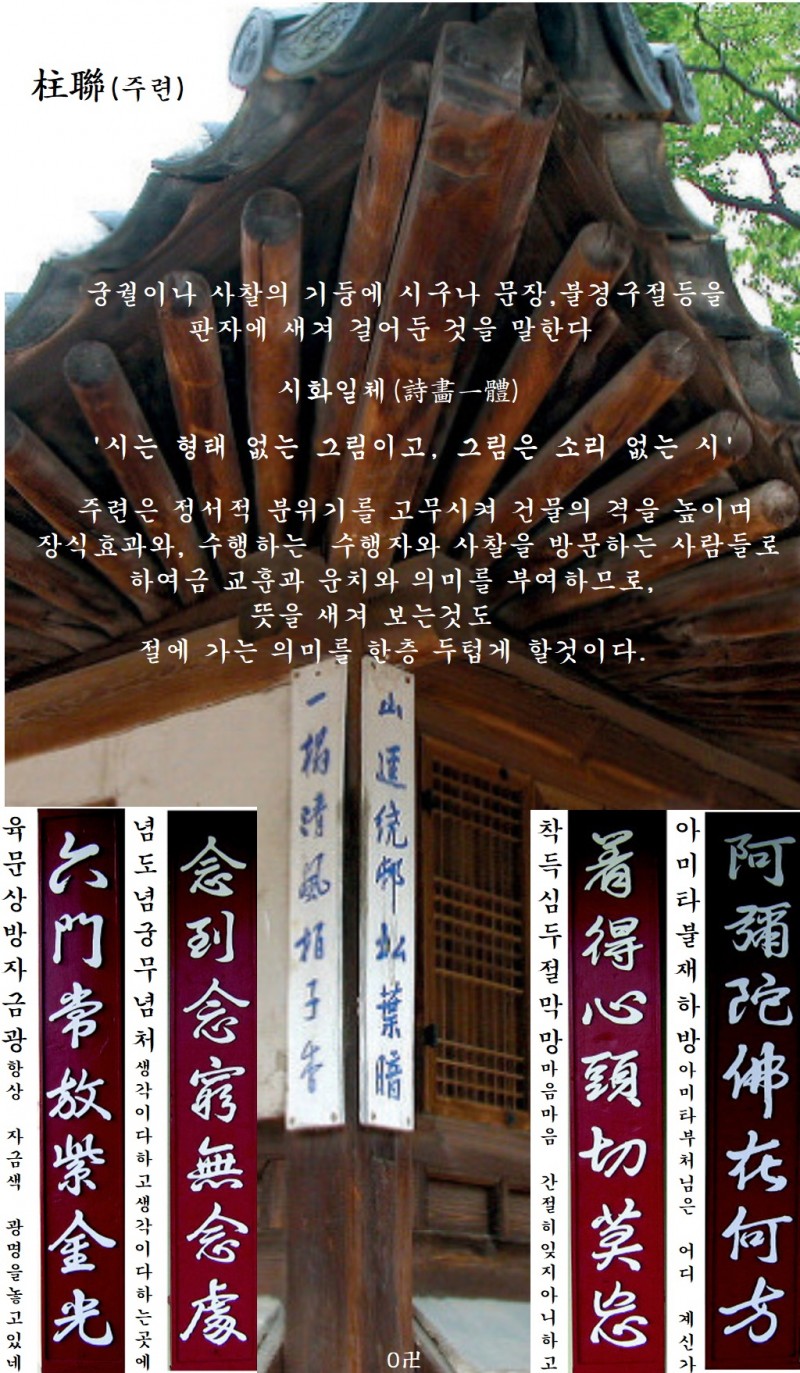 柱聯(주련)
궁궐이나 사찰의 기둥에 시구나 문장,불경구절등을
판자에 새겨 걸어둔 것을 말한다
시화일체(詩畵一體)
'시는 형태 없는 그림이고, 그림은 소리 없는 시'
주련은 정서적 분위기를 고무시켜 건물의 격을 높이며
장식효과와, 수행하는 수행자와 사찰을 방문하는 사람들로
하여금 교훈과 운치와 의미를 부여하므로,
뜻을 새겨 보는것도
절에 가는 의미를 한층 두텁게 할것이다.
山逕繞邨松葉暗
一榻清風栢子香
阿彌陀佛在何方
아미타불재하방 아미타부처님은 어디 계신가
着得心頭切莫忘
착득심두절막망 마음마음 간절히잊지아니하고
念到念窮無念處
념도념궁무념처 생각이다하고생각이다하는곳에
六門常放紫金光
육문상방자금광 항상 자금색 광명을놓고있네
O卍